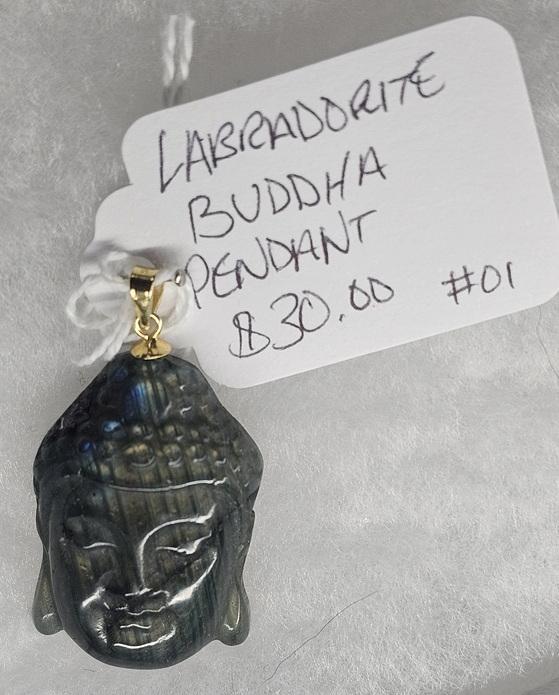 LABRADORITE
BUDDHA
PENDANT
$30.00 #01